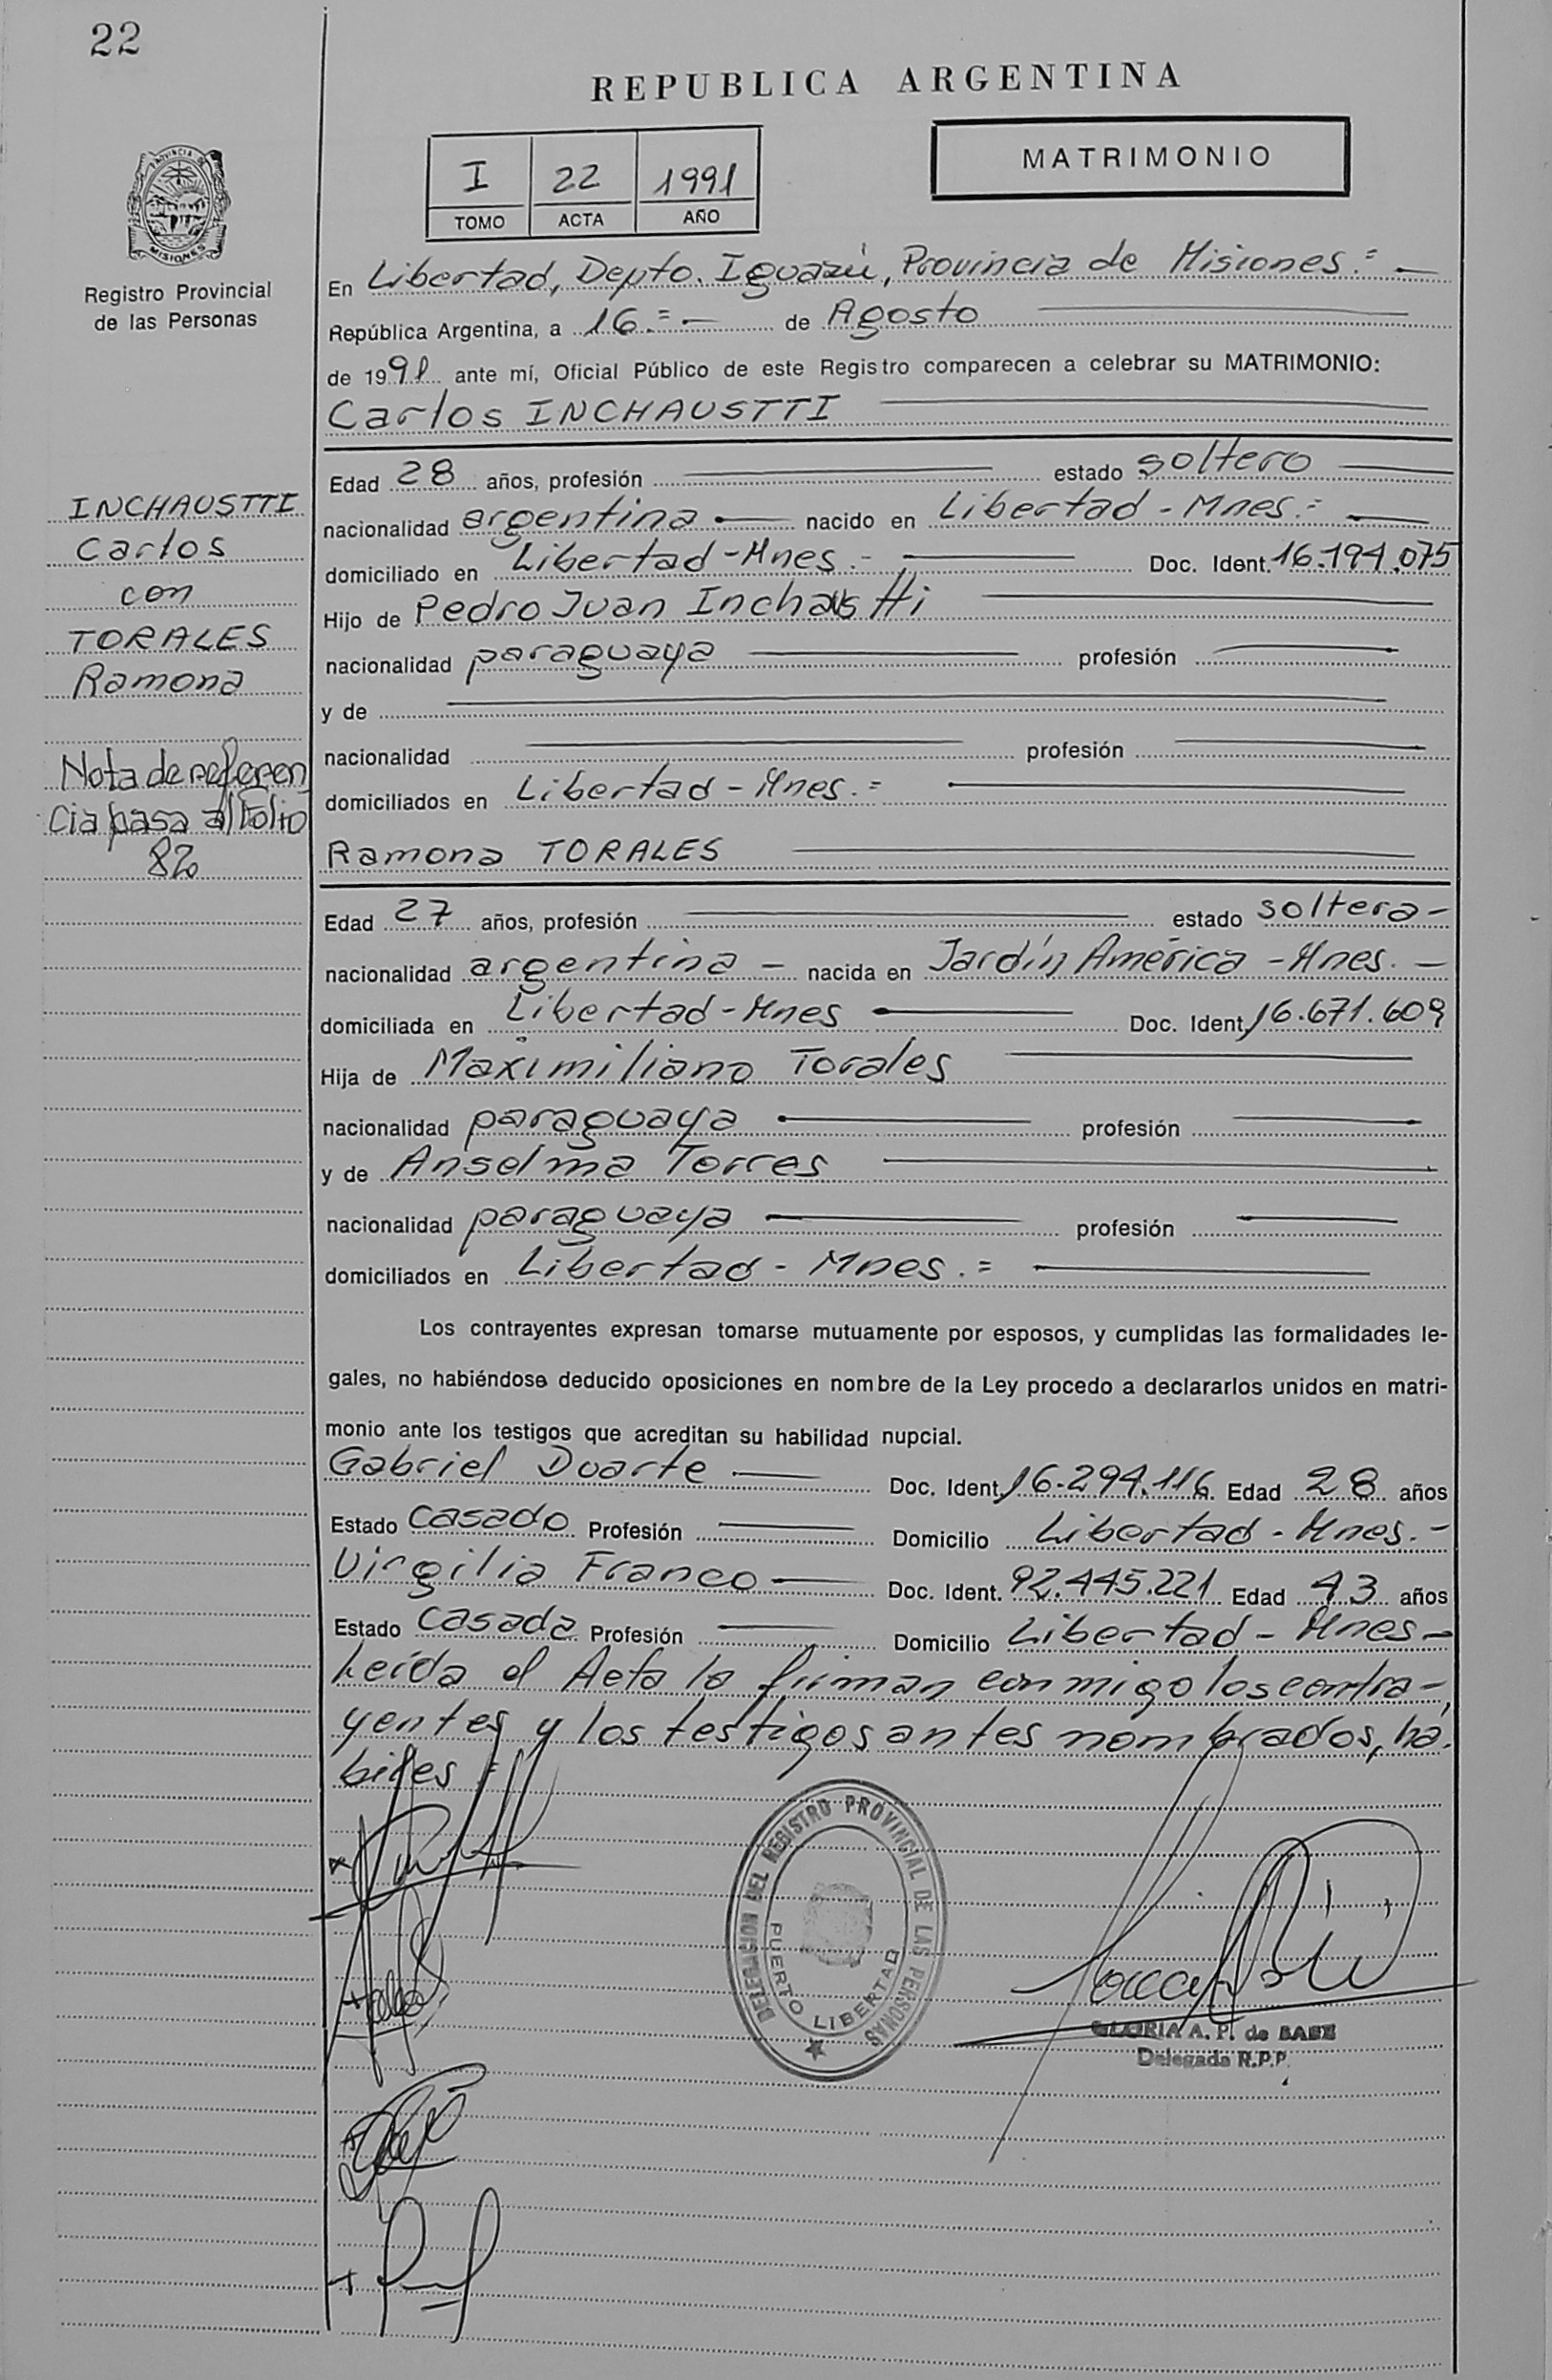 22
REPUBLICA ARGENTINA
I 22 1991
TOMO ACTA AÑO
MATRIMONIO
PROVINCIA DE
MISIONES
Registro Provincial
de las Personas
En Libertad, Depto. Iguazú, Provincia de Misiones.=—
República Argentina, a 16.=— de Agosto
de 1991 ante mí, Oficial Público de este Registro comparecen a celebrar su MATRIMONIO:
Carlos INCHAUSTTI
INCHAUSTTI
Carlos
con
TORALES
Ramona
Nota de referen
cia pasa al Folio
82
Edad 28 años, profesión — estado soltero —
nacionalidad argentina — nacido en Libertad - Mnes.= —
domiciliado en Libertad - Mnes.- — Doc. Ident. 16.194.075
Hijo de Pedro Juan Inchaustti —
nacionalidad paraguaya — profesión —
y de —
nacionalidad — profesión —
domiciliados en Libertad - Mnes.= —
Ramona TORALES —
Edad 27 años, profesión — estado soltera-
nacionalidad argentina — nacida en Jardín América - Mnes. —
domiciliada en Libertad - Mnes — Doc. Ident. 16.671.609
Hija de Maximiliano Torales —
nacionalidad paraguaya — profesión —
y de Anselma Torres —
nacionalidad paraguaya — profesión —
domiciliados en Libertad - Mnes.= —
Los contrayentes expresan tomarse mutuamente por esposos, y cumplidas las formalidades le-
gales, no habiéndose deducido oposiciones en nombre de la Ley procedo a declararlos unidos en matri-
monio ante los testigos que acreditan su habilidad nupcial.
Gabriel Duarte — Doc. Ident. 16.294.116 Edad 28 años
Estado casado Profesión — Domicilio Libertad - Mnes.-
Virgilia Franco — Doc. Ident. 92.445.221 Edad 43 años
Estado casada Profesión — Domicilio Libertad - Mnes-
Leída el Acta la firman conmigo los contra-
yentes y los testigos antes nombrados, há-
biles
DELEGACION DEL REGISTRO PROVINCIAL DE LAS PERSONAS
PUERTO LIBERTAD
GLORIA A. P. de BAEZ
Delegada R.P.P.